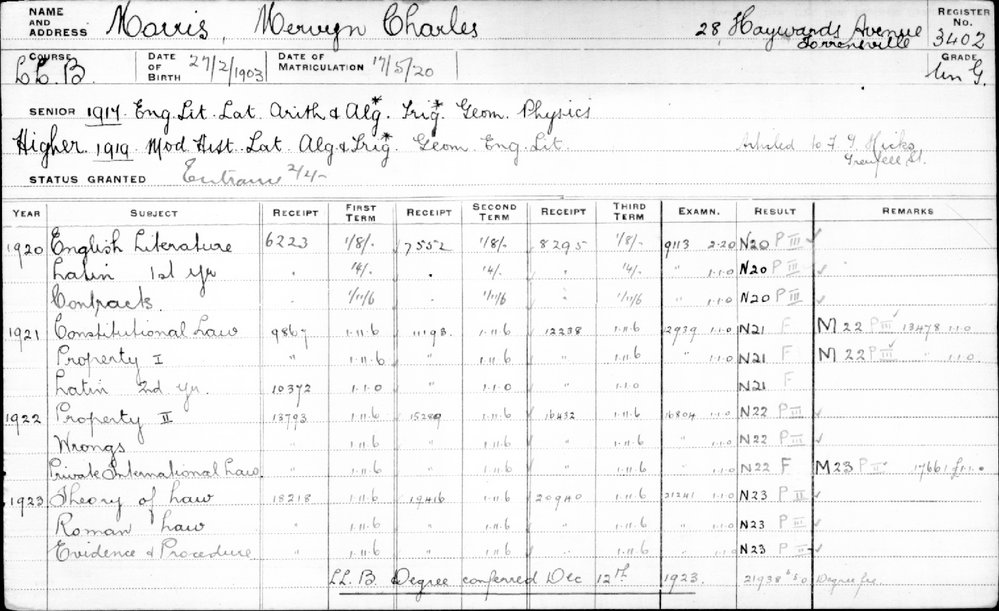 NAME AND ADDRESS Morris, Mervyn Charles 28, Haywards Avenue Torrensville REGISTER No. 3402
COURSE LL.B. DATE OF BIRTH 27/2/1903 DATE OF MATRICULATION 17/5/20 GRADE Un G.
SENIOR 1917. Eng. Lit. Lat. Arith & Alg*. Trig*. Geom. Physics
Higher 1919 Mod Hist. Lat. Alg & Trig* Geom. Eng. Lit. Articled to F G Hicks
Grenfell St.
STATUS GRANTED Entrance 2/4/-
YEAR SUBJECT RECEIPT FIRST TERM RECEIPT SECOND TERM RECEIPT THIRD TERM EXAMN. RESULT REMARKS
1920 English Literature 6223 1/8/- 7552 1/8/- 8295 1/8/- 9113 2.20 N20 P III ✓
Latin 1st Yr " 14/. " 14/. " 14/. " 1.1.0 N20 P III ✓
Contracts. " 1/11/6 " 1/11/6 " 1/11/6 " 1.1.0 N20 P III ✓
1921 Constitutional Law 9867 1.11.6 11193 1.11.6 12238 1.11.6 12939 1.1.0 N21 F M 22 P III ✓ 13478 1.1.0
Property I " 1.11.6 " 1.11.6 " 1.11.6 " 1.1.0 N21 F M 22 P III ✓ " 1.1.0
Latin 2nd Yr. 10372 1.1.0 " 1.1.0 " 1.1.0 N21 F
1922 Property II 13793 1.11.6 15289 1.11.6 16432 1.11.6 16804 1.1.0 N22 P III ✓
Wrongs " 1.11.6 " 1.11.6 " 1.11.6 " 1.1.0 N22 P III ✓
Private International Law " 1.11.6 " 1.11.6 " 1.11.6 " 1.1.0 N22 F M23 P II ✓ 17661 £1.1.0
1923 Theory of Law 18218 1.11.6 19416 1.11.6 20940 1.11.6 21241 1.1.0 N23 P II ✓
Roman Law " 1.11.6 " 1.11.6 " 1.11.6 " 1.1.0 N23 P III ✓
Evidence & Procedure " 1.11.6 " 1.11.6 " 1.11.6 " 1.1.0 N23 P II ✓
LL.B. Degree conferred Dec 12th 1923. 21938 Degree fee.